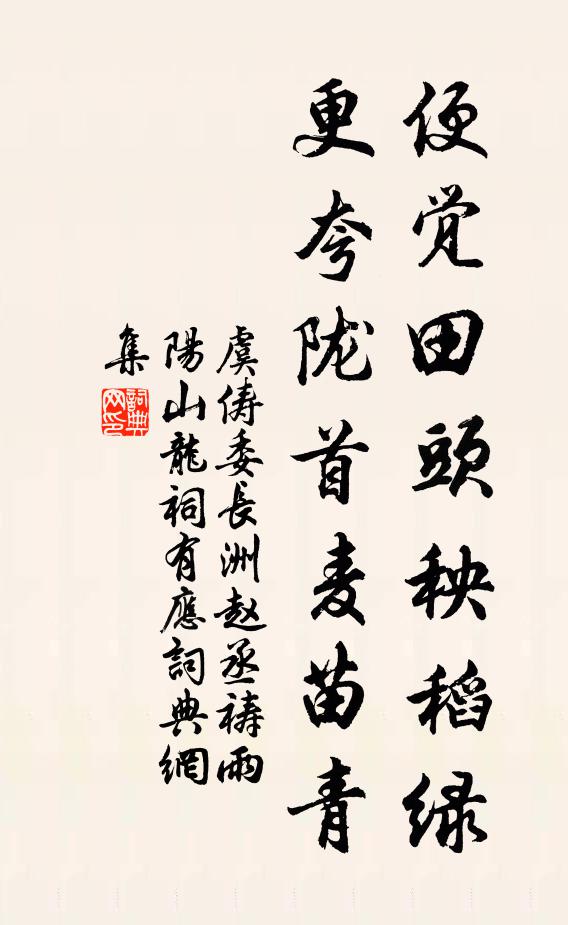 便觉田頭秧稻绿
更夸陇首麦苗青
虞俦委長洲赵丞禱雨
陽山龍祠有應詞典網
集
詞典网印